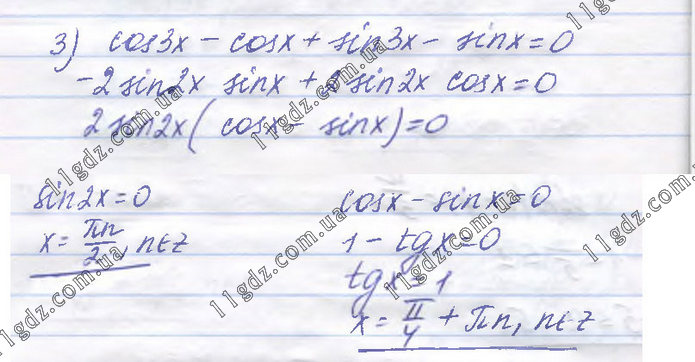 3) cos3x - cosx + sin3x - sinx = 0
-2 sin2x sinx + 2 sin2x cosx = 0
2 sin2x ( cosx - sinx) = 0
sin2x = 0
x = πn/2, n∈z
cosx - sinx = 0
1 - tgx = 0
tgx = 1
x = π/4 + πn, n∈z
11gdz.com.ua
11gdz.com.ua
11gdz.com.ua
11gdz.com.ua
11gdz.com.ua
11gdz.com.ua